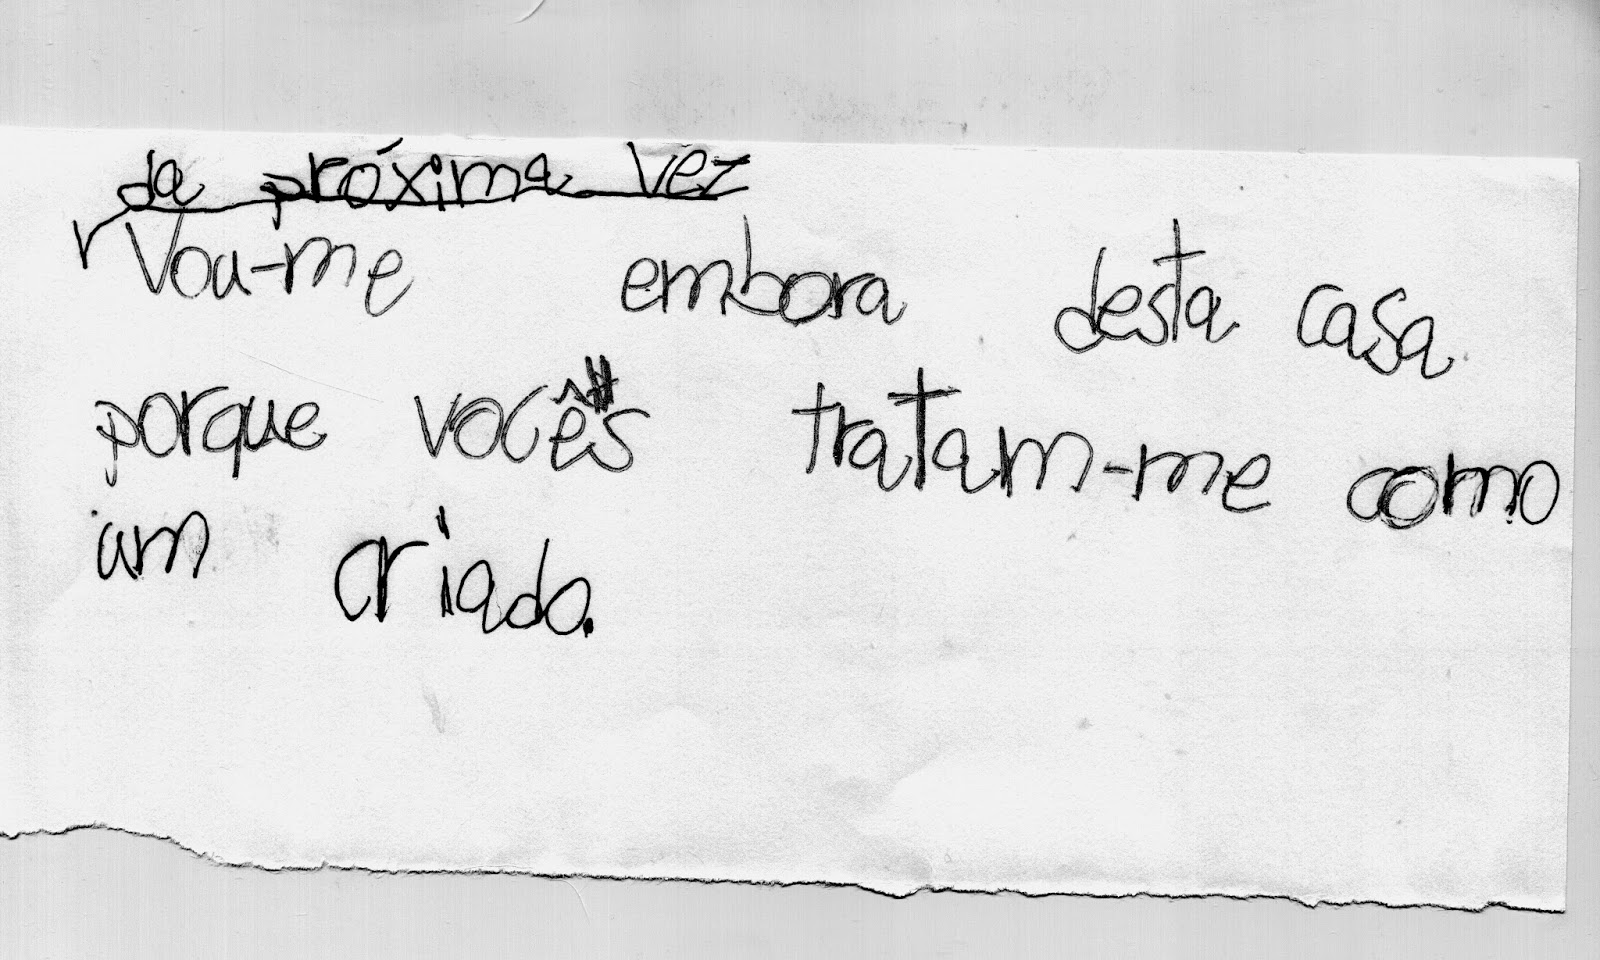 da próxima vez
Vou-me embora desta casa
porque vocês tratam-me como
um criado.